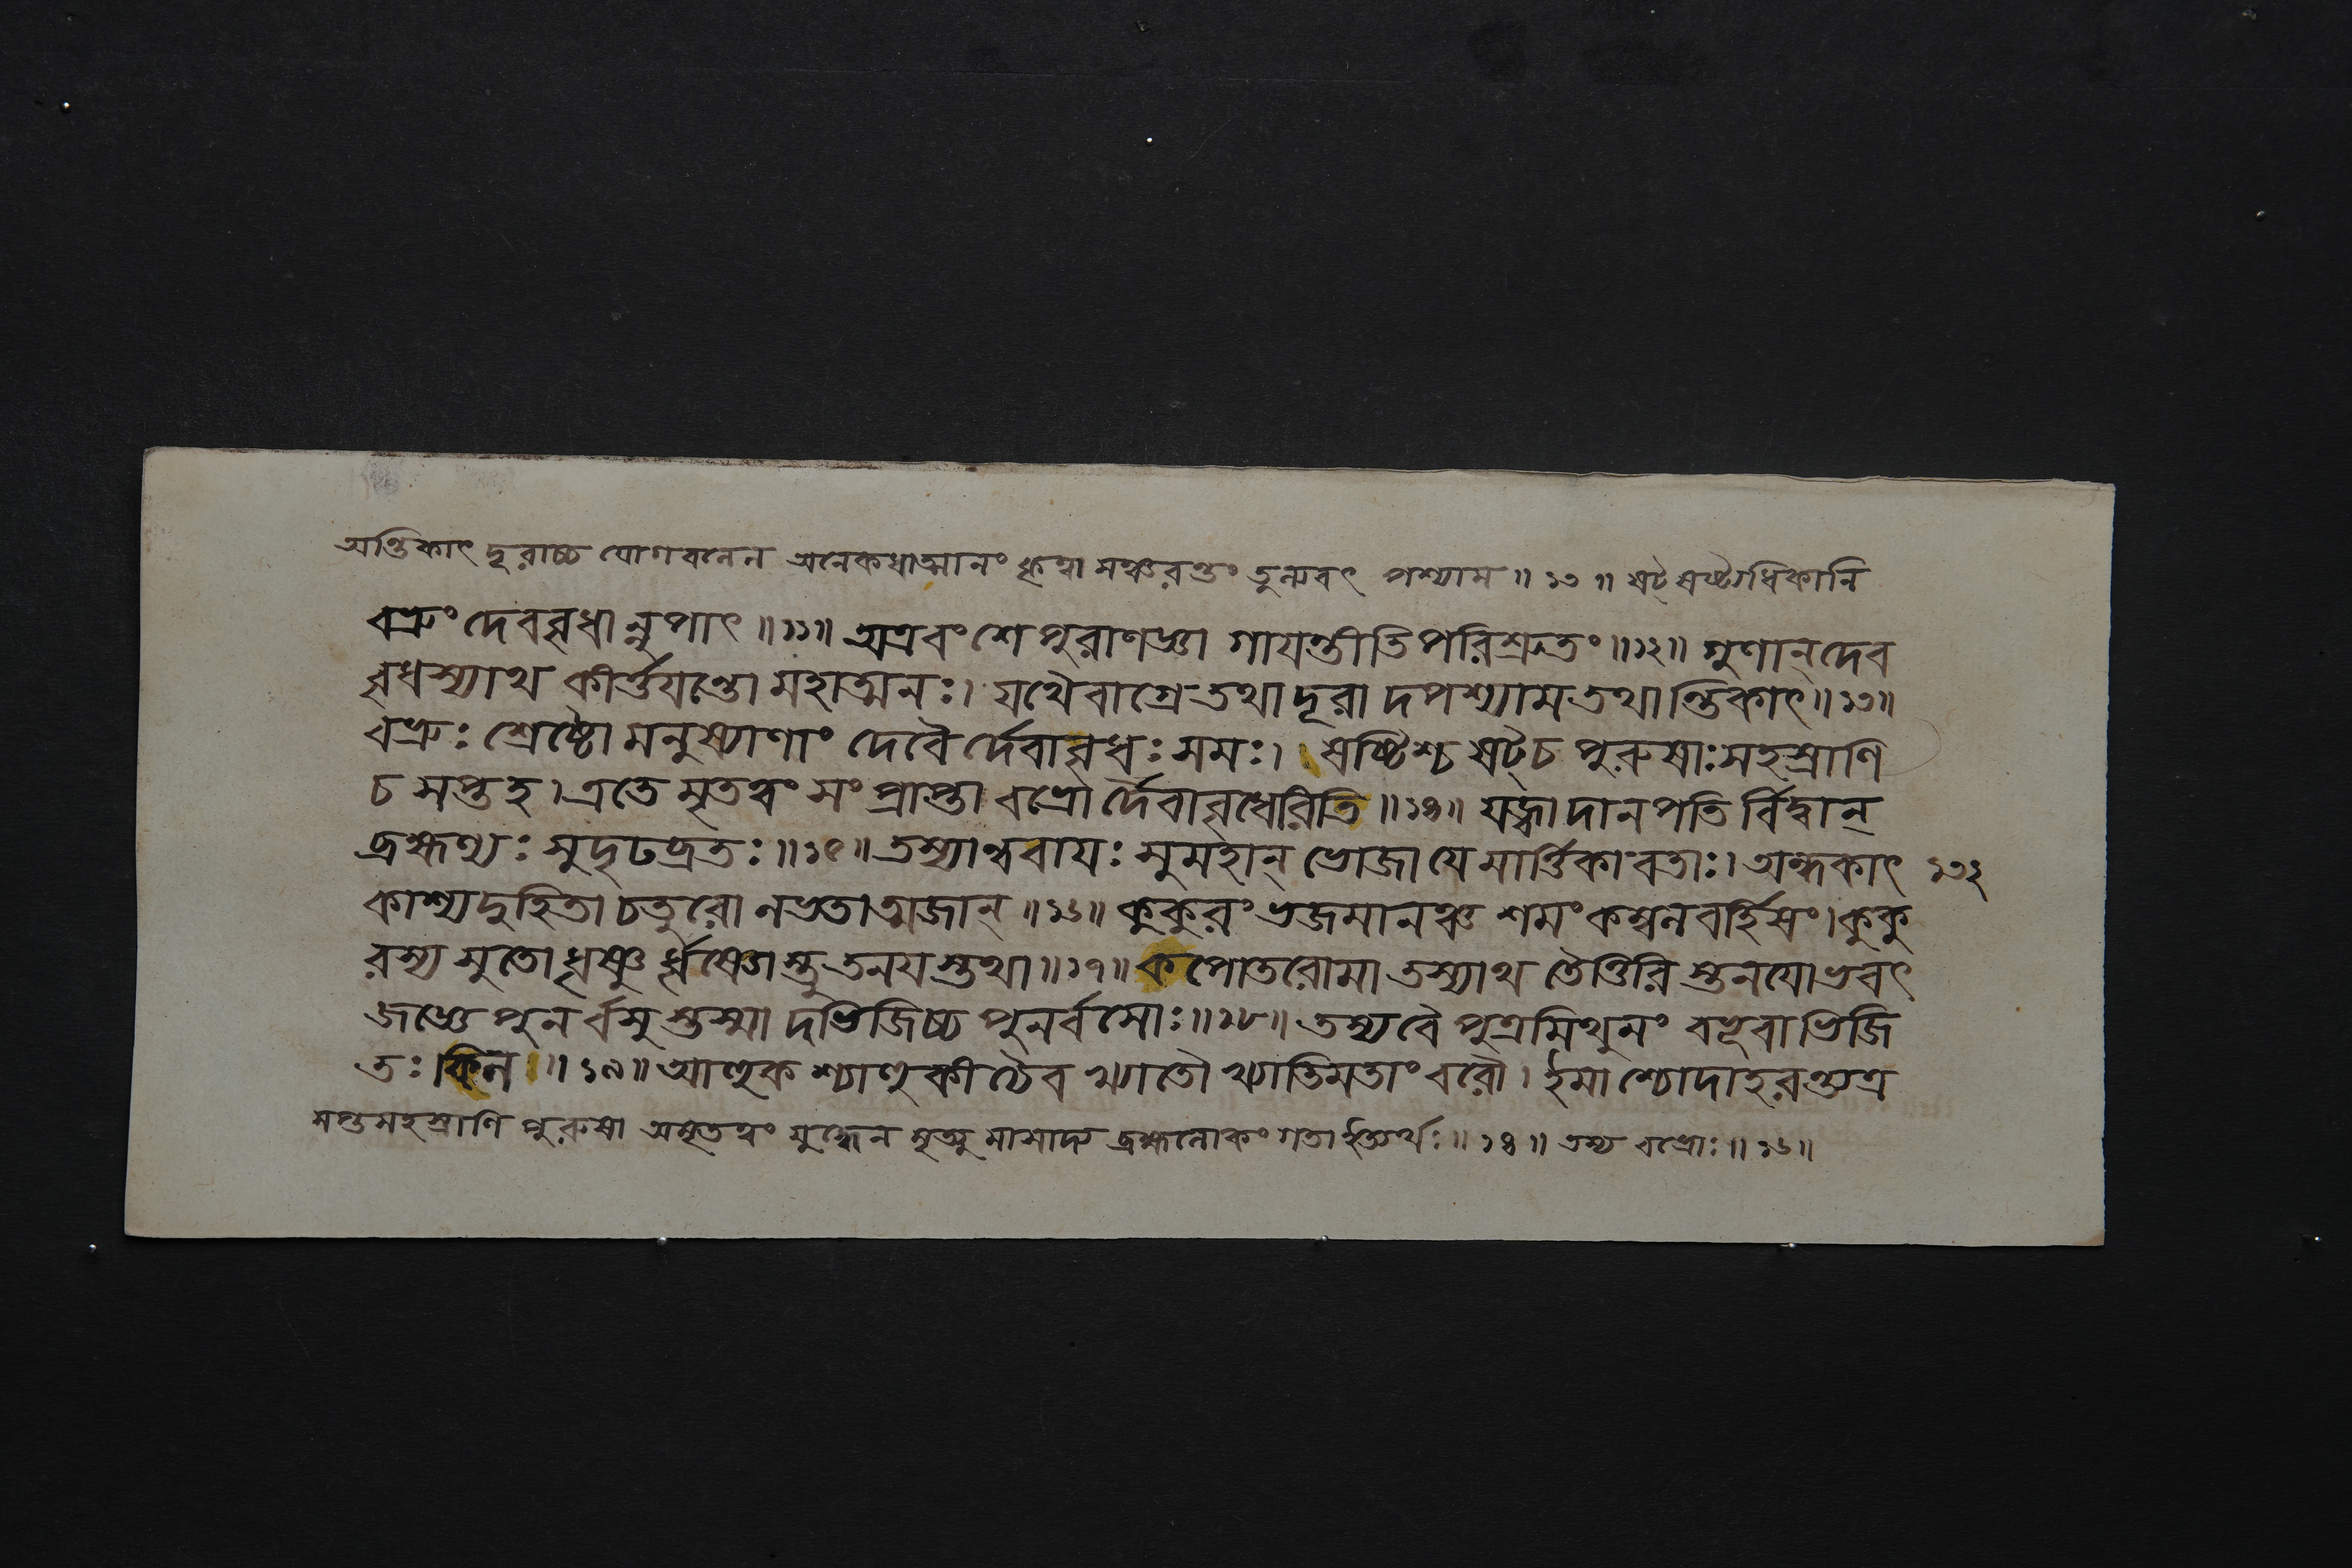 অন্তিকাৎ দূরাচ্চ যোগবলেন অনেকধাত্মানং কৃত্বা সঞ্চরন্তং তুল্যবৎ পশ্যাম ॥ ১৩ ॥ ষট্ ষষ্ট্যধিকানি
বভ্রুং দেববৃধান্নৃপাৎ ॥১১॥ অত্রবংশে পুরাণজ্ঞা গাযন্তীতি পরিশ্রুতং ॥১২॥ গুণান্ দেব
বৃধস্যাথ কীর্ত্তযন্তো মহাত্মনঃ। যথৈবাগ্রে তথা দূরাদপশ্যাম তথান্তিকাৎ ॥১৩॥
বভ্রুঃ শ্রেষ্ঠো মনুষ্যাণাং দেবৈর্দেবাবৃধঃ সমঃ। ষষ্টিশ্চ ষট্ চ পুরুষাঃ সহস্রাণি
চ সপ্ত হ। এতে মৃতত্বং সংপ্রাপ্তা বভ্রোর্দেবাবৃধেরিতি ॥১৪॥ যজ্বা দানপতির্বিদ্বান্
ব্রহ্মণ্যঃ সুদৃঢব্রতঃ ॥১৫॥ তস্যান্ববাযঃ সুমহান্ ভোজা যে মার্ত্তিকাবতাঃ। অন্ধকাৎ ১৩২
কাশ্যদুহিতা চতুরো লভতাত্মজান্ ॥১৬॥ কুকুরং ভজমানঞ্চ শমং কম্বলবর্হিষং। কুকু
রস্য সুতো ধৃষ্ণু র্ধৃষ্ণোস্তু তনযস্তথা ॥১৭॥ কপোতরোমা তস্যাথ তৈত্তিরিস্তনযোভবৎ
জজ্ঞে পুনর্বসুস্তস্মাদভিজিচ্চ পুনর্বসোঃ ॥১৮॥ তস্য বৈ পুত্রমিথুনং বভূবাভিজি
তঃ কিল ॥১৯॥ আহুকশ্যাহুকী চৈব খ্যাতৌ খ্যাতিমতাং বরৌ। ইমাশ্চোদাহরন্ত্যত্র
সপ্তসহস্রাণি পুরুষা অমৃতত্বং যুদ্ধেন মৃত্যুমাসাদ্য ব্রহ্মলোকং গতা ইত্যর্থঃ ॥ ১৪ ॥ তস্য বভ্রোঃ ॥ ১৬ ॥